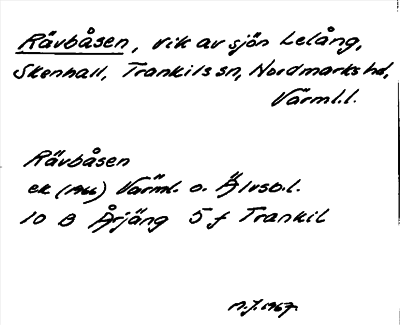 Rävbåsen, vik av sjön Lelång,
Skenhall, Trankils sn, Nordmarks hd,
Värml.l.
Rävbåsen
ek (1966) Värml. o. Älvsb.l.
10 B Årjäng 5 f Trankil
M.J. 1967.